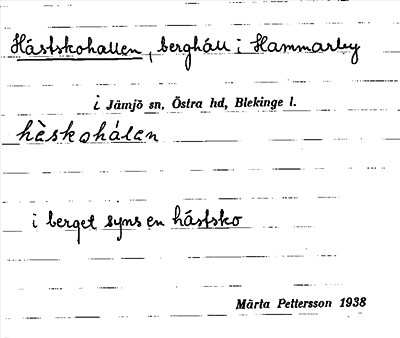 Hästskohallen, berghäll i Hammarby
i Jämjö sn, Östra hd, Blekinge l.
hèskohálan
i berget syns en hästsko
Märta Pettersson 1938